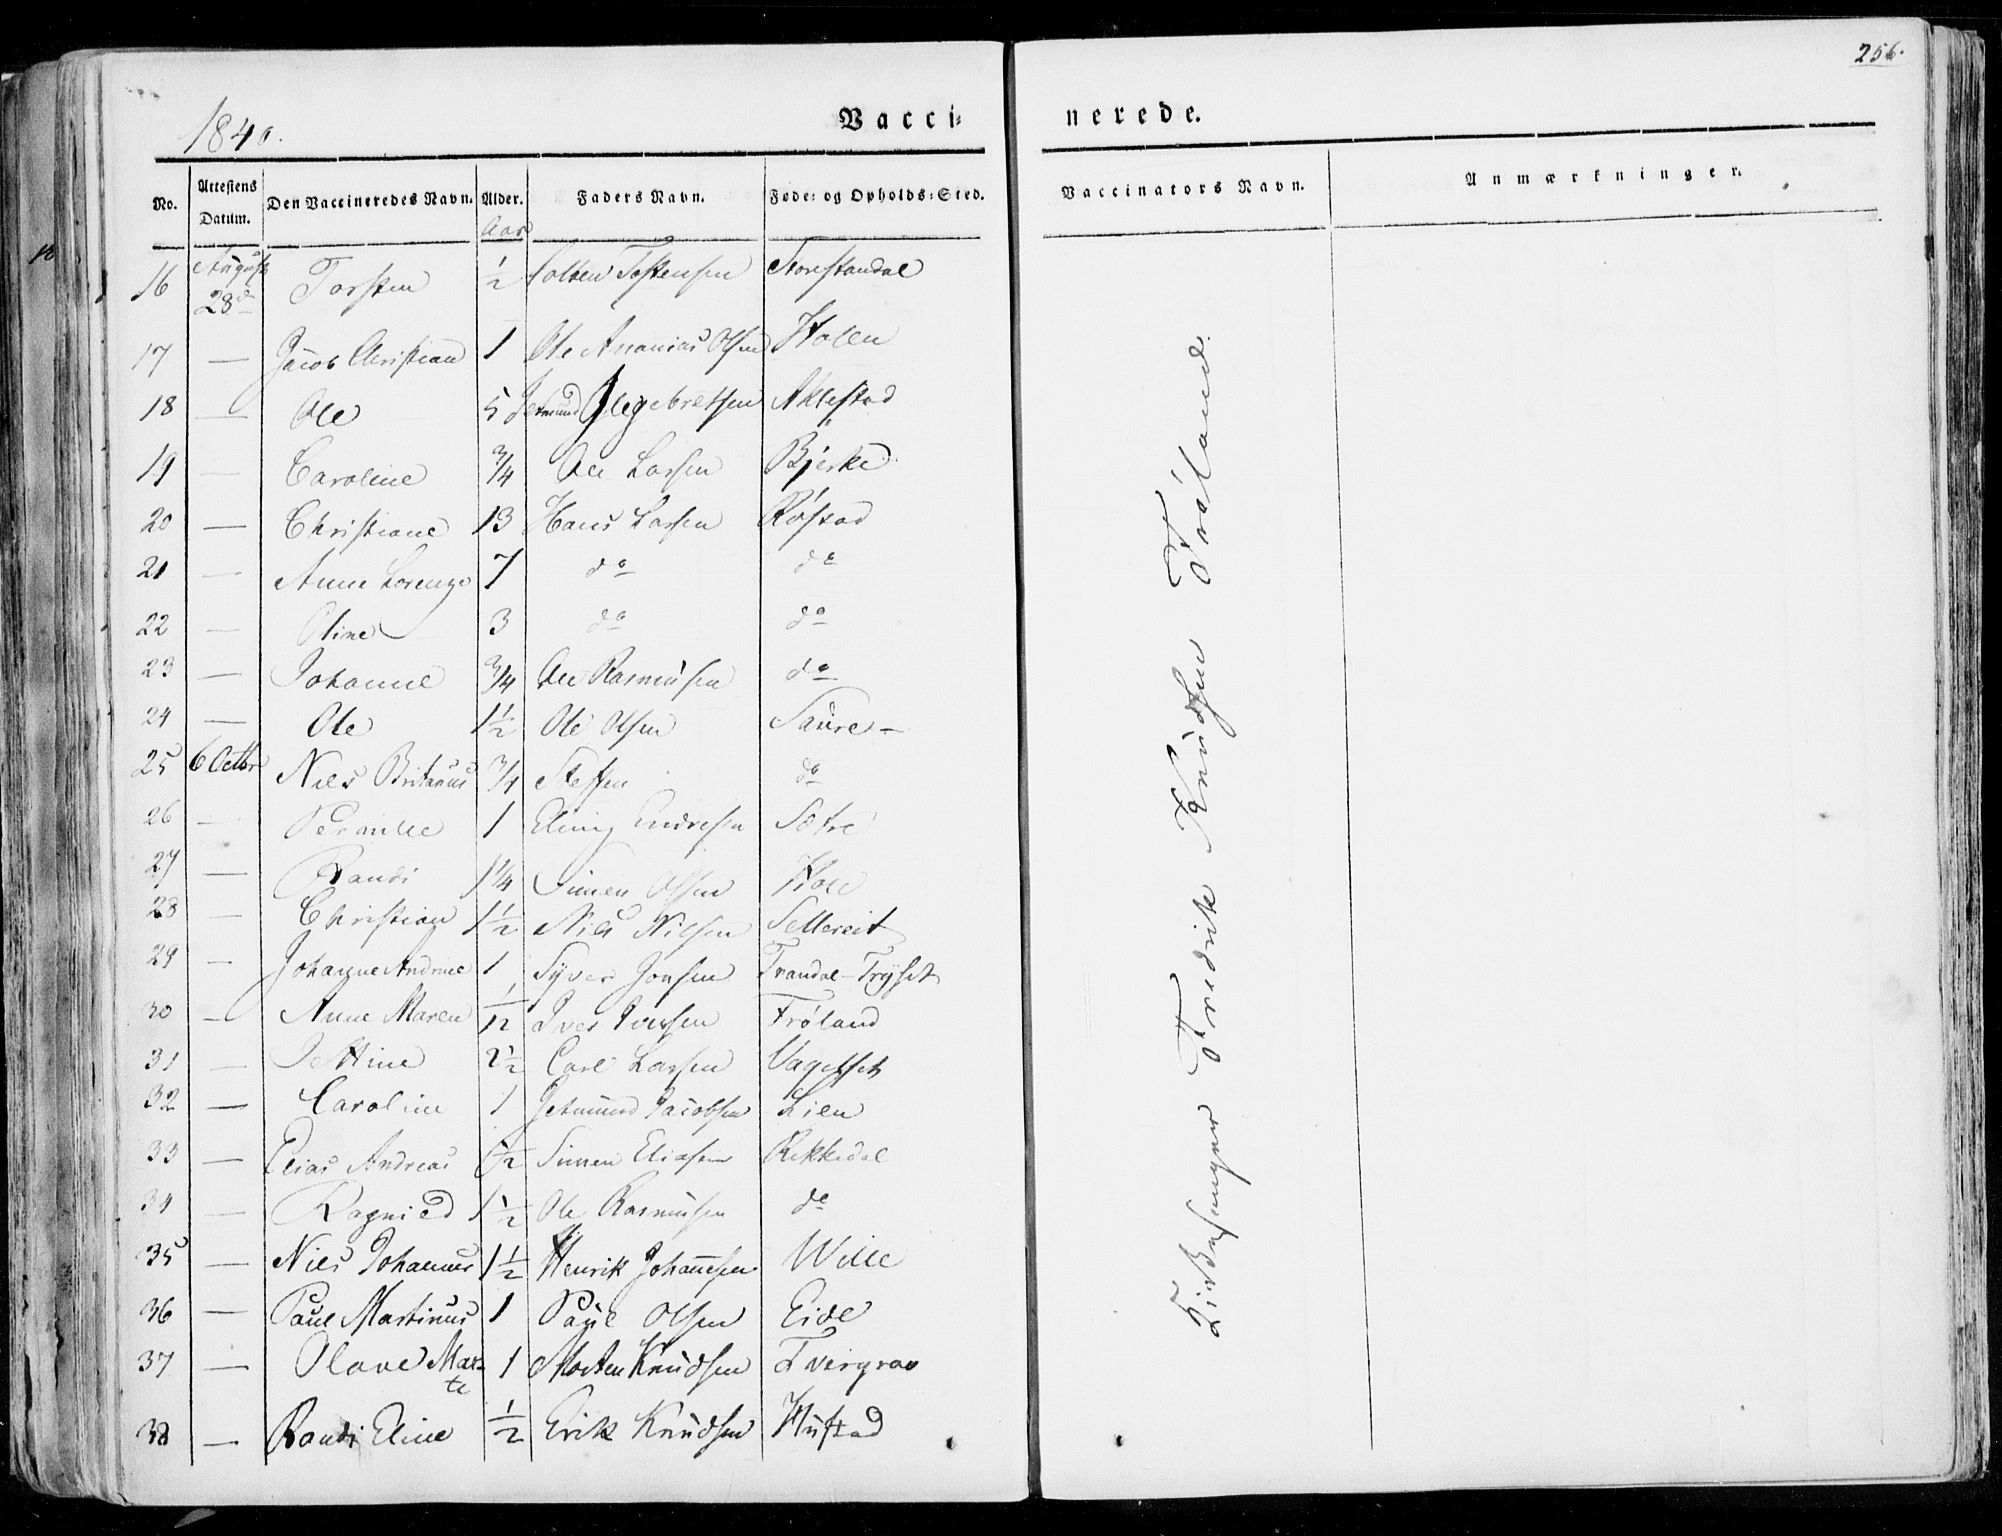 256.
1840.
Vacci- nerede.
No. Attestens Datum. Den Vaccineredes Navn. Alder. Faders Navn. Føde- og Opholds-Sted. Vaccinators Navn. Anmærkninger.
Aar
16 August 28de Torsten ½ Tostensen Storestandal
17 — Jacob Christian 1 Ole Ananias Olsen Holen
18 — Ole 5 Jetmund Ingebretsen Aklestad
19 — Caroline ¾ Ole Larsen Bjerke
20 — Christiane 13 Hans Larsen Røstad
21 — Anne Lorenze 7 do do
22 — Oline 3 do do
23 — Johanne ¾ Ole Rasmusen do
24 — Ole 1½ Ole Olsen Saure —
25 6 Octbr Niels Britanus ¾ Steffen do
26 — Pernille 1 Elling Endresen Sætre
27 — Randi 1¼ Simen Olsen Hole
28 — Christian 1½ Niels Nielsen Sellereit
29 — Johanne Andrine 1 Syver Jonsen Trandal-Tryset
30 — Anne Maren 1/12 Iver Iversen Frøland
31 — Jettine 2½ Carl Larsen Vagelset
32 — Caroline 1 Jetmund Jacobsen Lien
33 — Elias Andreas ½ Simen Eliasen Rekkedal
34 — Ragnied 1½ Ole Rasmusen do
35 — Niels Johannes 1½ Henrik Johannesen Wille
36 — Paul Martinus 1 Paul Olsen Eide
37 — Olave Mar-
te 1 Morten Knudsen Tvergrov
38 — Randi Eline ½ Erik Knudsen Hustad
Kirkesanger Fredrik Knudsen Frøland.